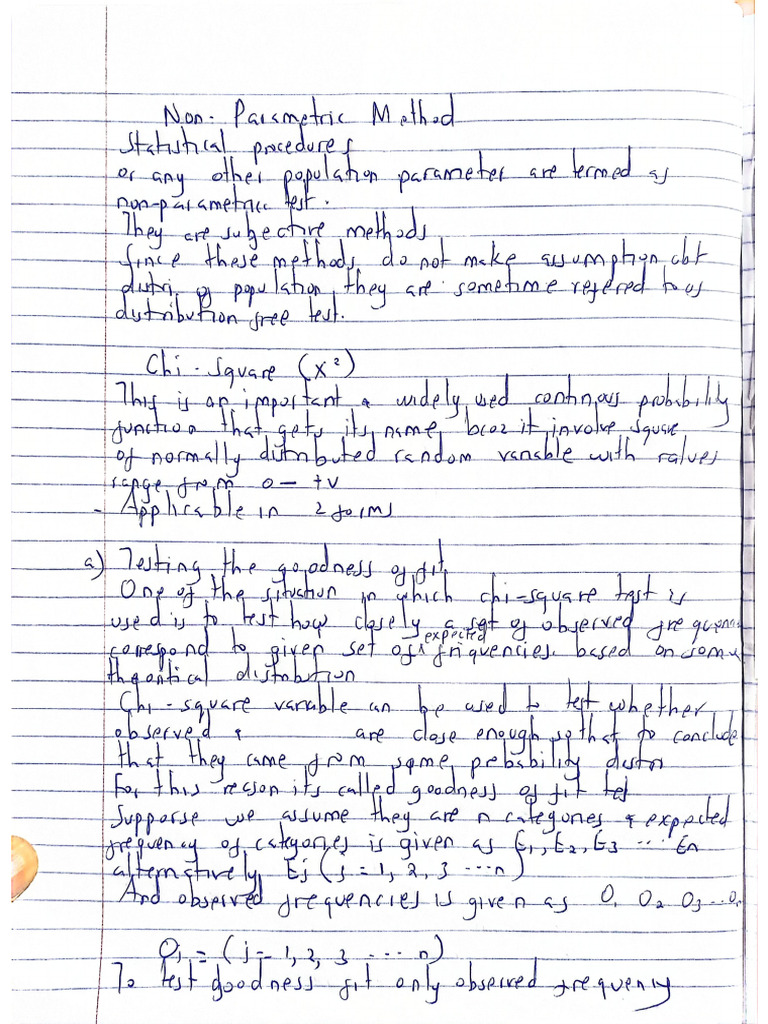 Non-Parametric Method
Statistical procedures
or any other population parameter are termed as
non-parametric test.
They are subjective methods
Since these methods do not make assumption abt
distri. of population, they are sometime refered to as
distribution free test.
Chi-square (X²)
This is an important & widely used continous probability
function that gets its name bcoz it involve square
of normally distributed random variable with values
range from 0 - +v
- Applicable in 2 forms
a) Testing the goodness of fit
One of the situation in which chi-square test is
used is to test how closely a set of observed frequen
correspond to given set of expected friquencies based on some
theoritical distribution
Chi-square variable can be used to test whether
observed & are close enough so that to conclude
that they came from same probability distrn
For this reason its called goodness of fit test
Supporse we assume they are n categories & expected
frequency of categories is given as E1, E2, E3 ... En
alternatively Ej (j = 1, 2, 3 ... n)
And observed frequencies is given as O1 O2 O3 ... On
Oj = (j = 1, 2, 3 .... n)
To test goodness fit only observed frequency